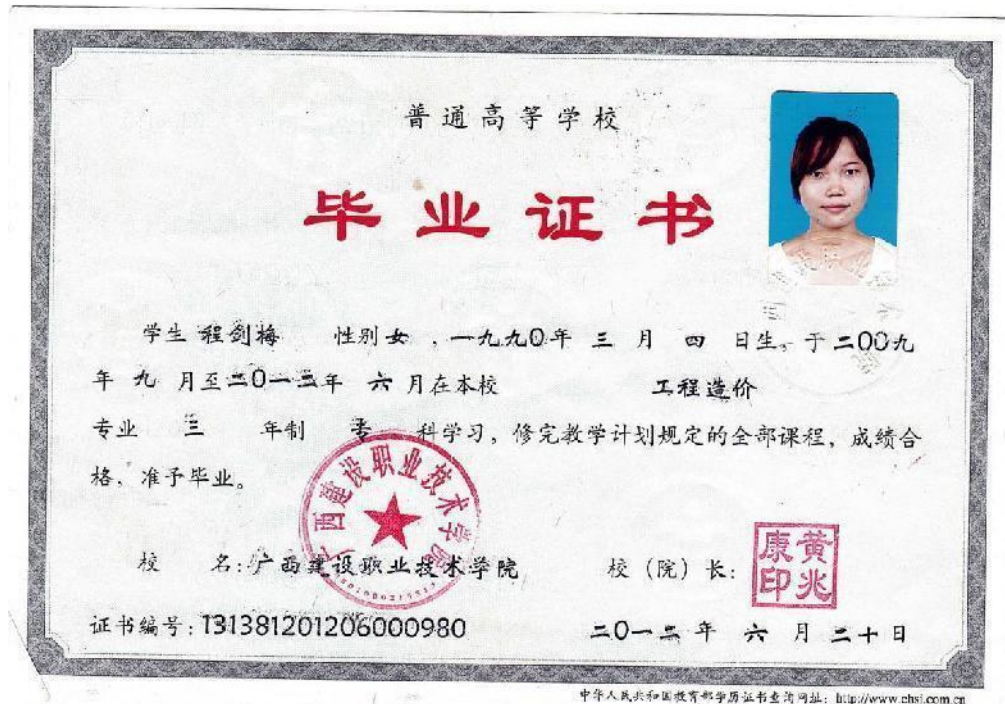 普通高等学校
毕业证书
学生 程剑梅 性别 女 ，一九九〇年 三 月 四 日生，于二〇〇九
年 九 月至二〇一二年 六 月在本校 工程造价
专业 三 年制 专 科学习，修完教学计划规定的全部课程，成绩合
格，准予毕业。
广西建设职业技术学院
校 名：广西建设职业技术学院 校（院）长：
黄兆康印
证书编号：131381201206000980 二〇一二年 六 月 二十日
中华人民共和国教育部学历证书查询网址：http://www.chsi.com.cn